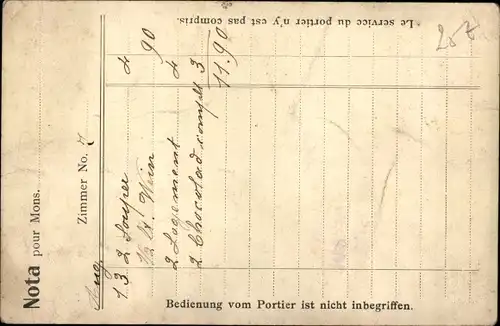 Nota pour Mons.
Zimmer No. 7
Aug.
13. 2 Souper 4
1/2 W. Wein 90
2 Logement 4
2 Chocolad compl. 3
11.90
Bedienung vom Portier ist nicht inbegriffen.
Le service du portier n'y est pas compris.